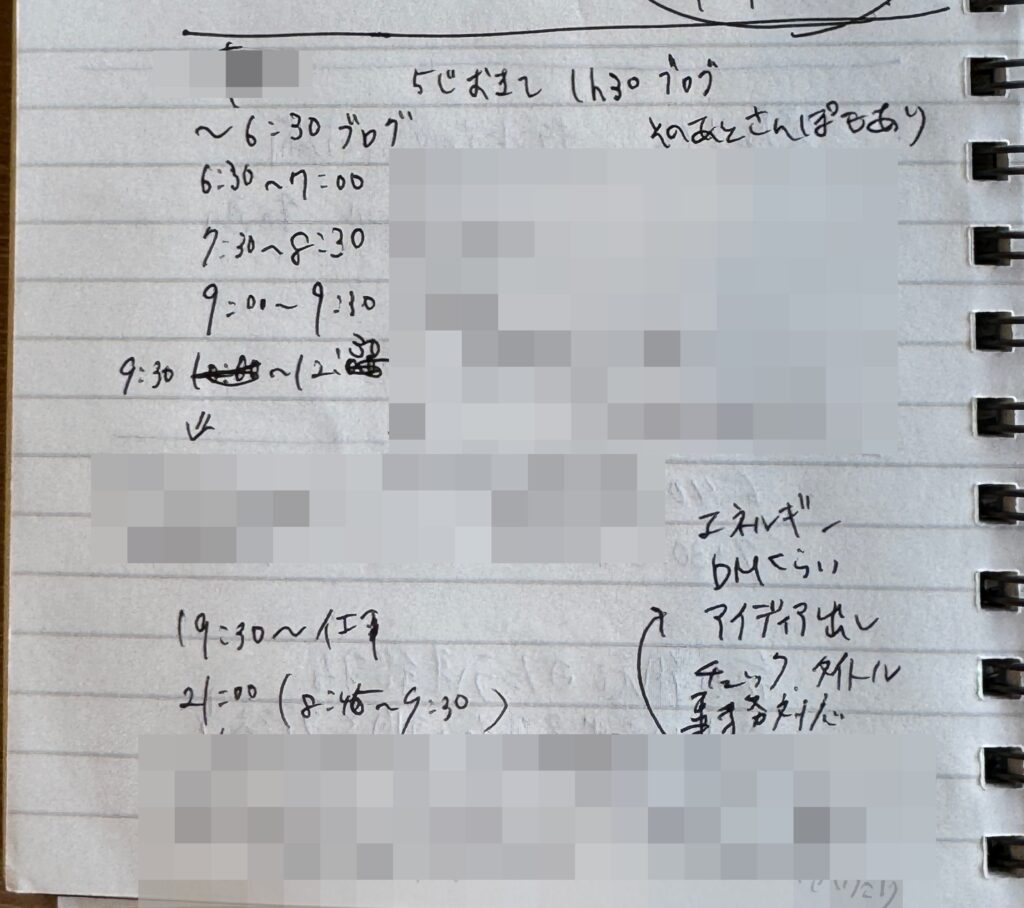 5じおきて 1h30 ブログ
〜6:30 ブログ
そのあとさんぽもあり
6:30〜7:00
7:30〜8:30
9:00〜9:30
9:30 〜12:30
エネルギー
DMくらい
19:30〜
アイディア出し
チェック.タイトル
21:00 (8:45〜9:30)